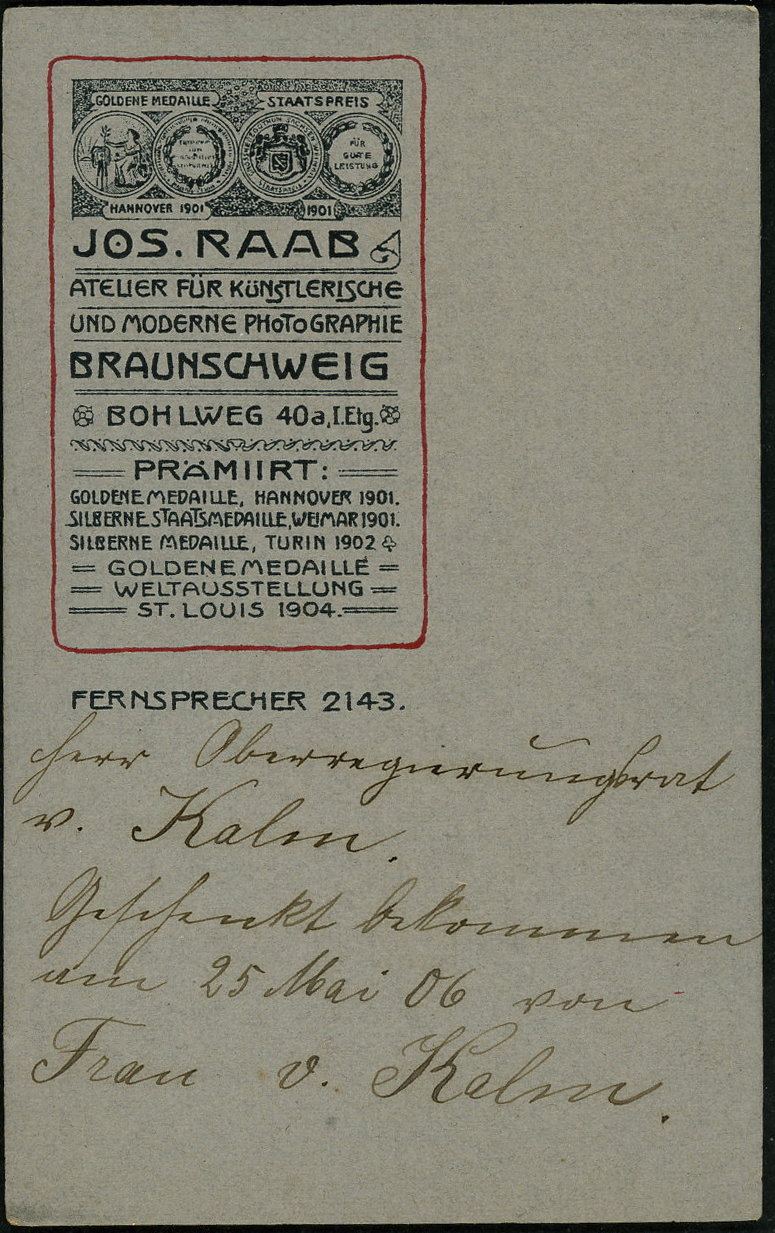 GOLDENE MEDAILLE STAATSPREIS
FÜR
GUTE
LEISTUNG
HANNOVER 1901 1901
JOS. RAAB
ATELIER FÜR KÜNSTLERISCHE
UND MODERNE PHOTOGRAPHIE
BRAUNSCHWEIG
BOHLWEG 40a, I. Etg.
PRÄMIIRT:
GOLDENE MEDAILLE, HANNOVER 1901.
SILBERNE STAATSMEDAILLE, WEIMAR 1901.
SILBERNE MEDAILLE, TURIN 1902
GOLDENE MEDAILLE
WELTAUSSTELLUNG
ST. LOUIS 1904.
FERNSPRECHER 2143.
Herr Oberregierungsrat
v. Kalm.
Geschenkt bekommen
am 25 Mai 06 von
Frau v. Kalm.